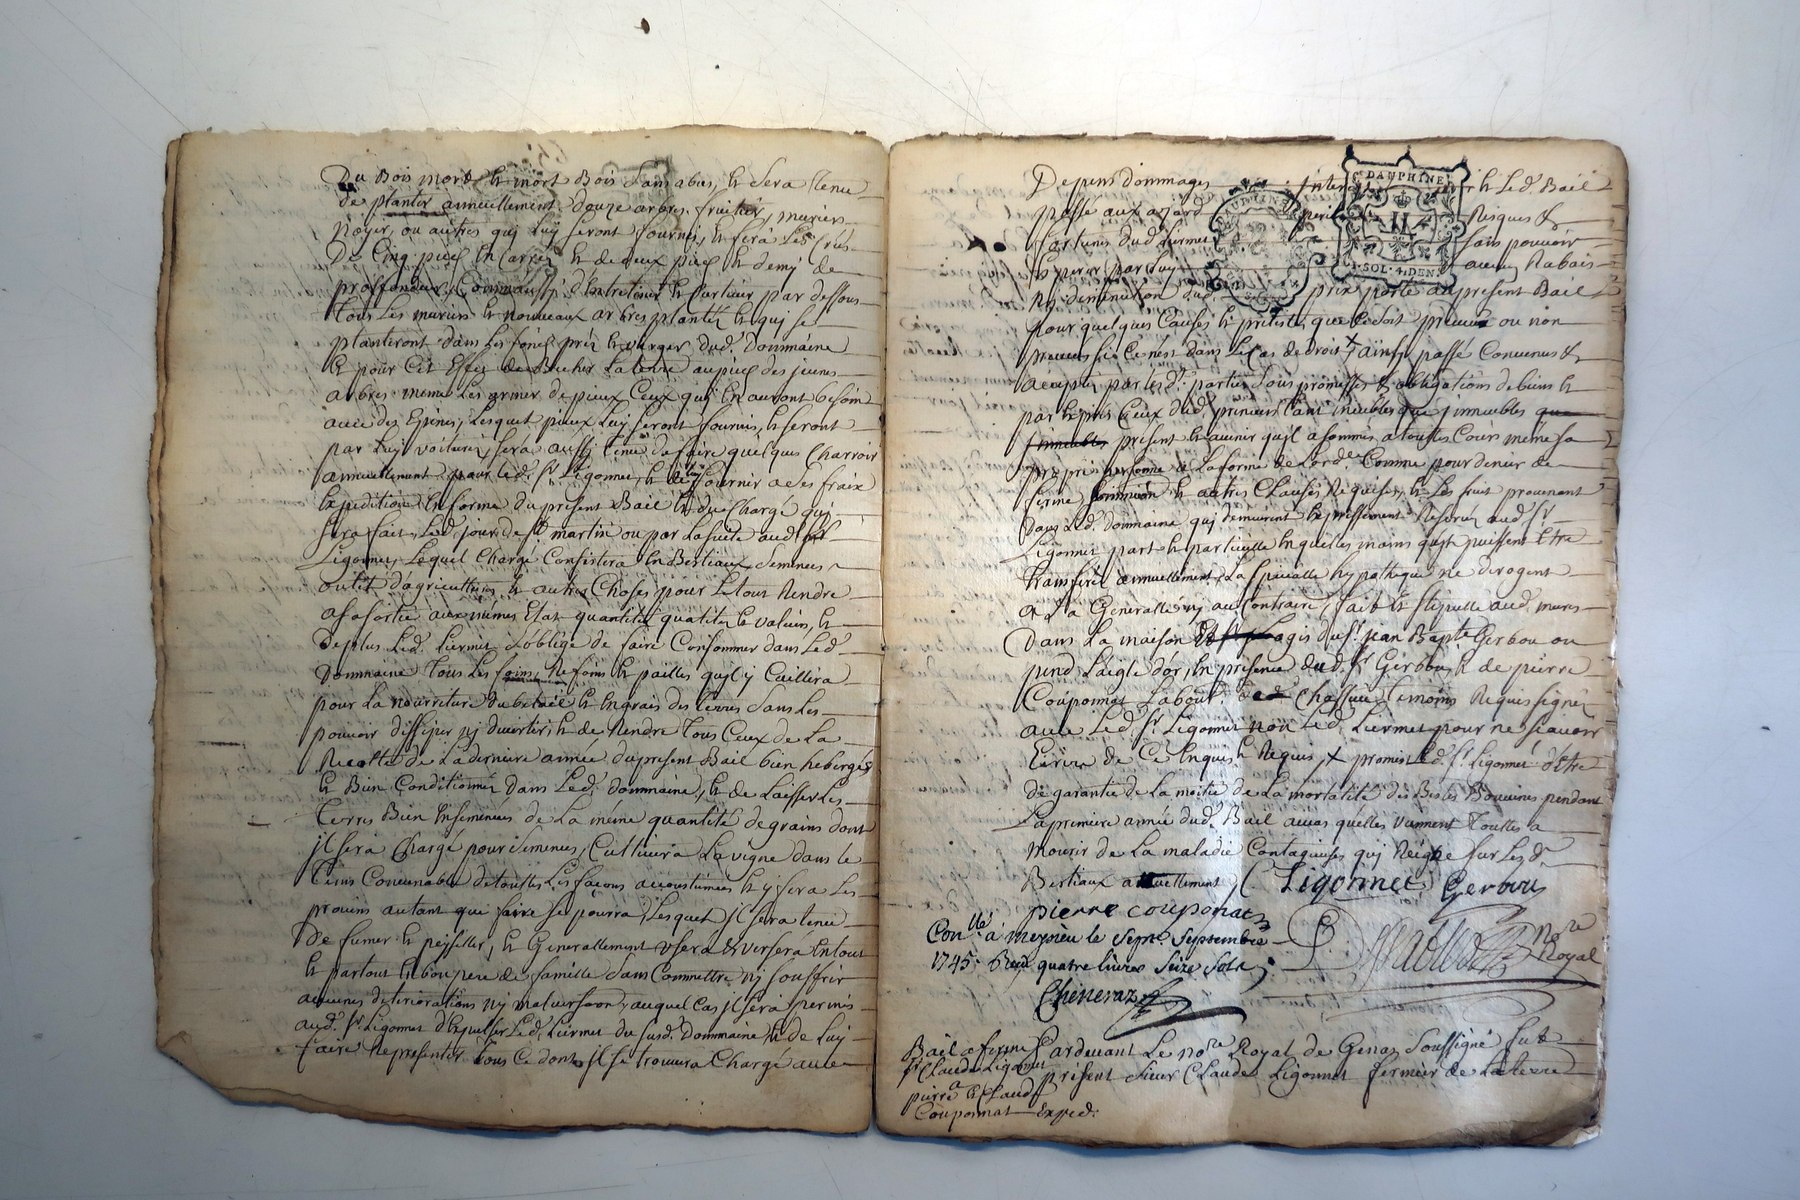 Du Bois mort & mort Bois sans abus, & sera tenu
de planter annuellement douze arbres fruitiers, muriers
noyer, ou autres qui luy seront fournis, & fera les
De Cinq pieds en carrez & de deux pieds & demy de
proffondeur, Comm'aussy d'Entretenir & par dessous
tous Les muriers & nouveaux arbres plantez & qui se
planteront dans Les fonds prez & verger dud. dommaine
& pour Cet Effet de Becher La terre au pied des jeunes
arbres meme Les armer de pieux Ceux qui En auront besoin
avec des Epines, Lesquels pieux Luy seront fournis, & seront
par Luy voiturez, sera aussy tenu de faire quelques Charroir
annuellement pour led. Sr. Ligonnet, & de luy fournir a ses fraix
Expedition En forme du present Bail & du Chargé qui
sera fait, Led. jour de St. martin ou par La suite aud. Sr.
Ligonnet, Lequel Chargé Consistera En Bestiaux Semences
outils d'agriculture & autres Choses pour Le tout Rendre
a sa sortie aux mêmes Etat quantité qualitez & valeurs, &
De plus Led. Liermet s'oblige de faire Consommer dans Led.
Dommaine tous Les foins & pailles qu'il y Cuillira
pour La nourriture du betail & Engrais des terres sans Les
pouvoir dissiper ny divertir & de Rendre Tous Ceux de La
Recolte de La derniere année du present Bail bien hebergés
& Bien Conditionnez dans Led. dommaine, & de Laisser Les
Terres Bien Ensemencées de La même quantité de grains dont
il sera Chargé pour semences, Cultivera La vigne dans le
tems Convenable de touttes Les façons accoustumées & y fera Les
provins autant que faire se pourra, Lesquels il sera tenu
De fumer & , & Generallement usera & versera En tout
& partout En bon pere de famille sans Commettre ny souffrir
aucunes deteriorations ny malversaon, auquel cas il sera permis
aud. Sr. Ligonnet d'Expulser Led. Liermet du susd. Dommaine & de Luy
faire Representer tous Ce dont il se trouvera Chargé avec
Depens dommages interets & Led. Bail
passé aux azard perils Risques &
fortunes dud. Liermet sans pouvoir
Esperer par Luy aucun Rabais
Ny diminution dud. prix porté au present Bail
pour quelques Causes & pretextes que Ce soit preveues ou non
preveues si Ce n'est dans Le Cas de droit X ainsy passé Convenus &
acceptés par Lesd. parties sous promesses & obligations de biens &
par Exprés Ceux dud. preneur tant meubles que immeubles
present & avenir qu'il a sommis a touttes Cours même sa
propre personne a La forme de L'orde. Comme pour denier de
ferme & autres Clauses Requises, & Les fruit provenant
Dans Led. dommaine qui demeurent Expressement Reservés aud. Sr.
Ligonnet part & particulle En quelles mains qu'ils puissent Etre
transferés annuellement La specialle hypotheque ne derogent
a La Generalle ny au Contraire, fait & stipullé aud. 
Dans La maison Logis du Sr. Jean Bapte Gerbou ou
pend L'aigle d'or, En presence dud. Sr. Gerbou & de pierre
Couponnat Labour. Chassieu temoins Requis signéz
avec Led. Sr. Ligonnet non Led. Liermet pour ne sçavoir
Ecrire de Ce Enquis & Requis, X promis Led. Sr. Ligonnet d'Etre
de garantie de La moitié de La mortalité des Bestes Bovines pendant
La premiere année dud. Bail au cas quelles vinnent touttes a
Mourir de La maladie Contagieuses qui Regne sur Lesd.
Bestiaux actuellement Ligonnet Gerbou
pierre couponat
Conllé a meyzieu le sept. Septembre
1745. Reçu quatre livres Seize Sols
Cheneraz
Nore
Royal
DAUPHINE
SOL. 4. DEN.
Bail a ferme
Sr. Claude Ligonnet
a
pierre & Claude
Couponnat Exped.
Pardevant Le nore. Royal de Genas Soussigné fut
present sieur Claude Ligonnet fermier de La terre